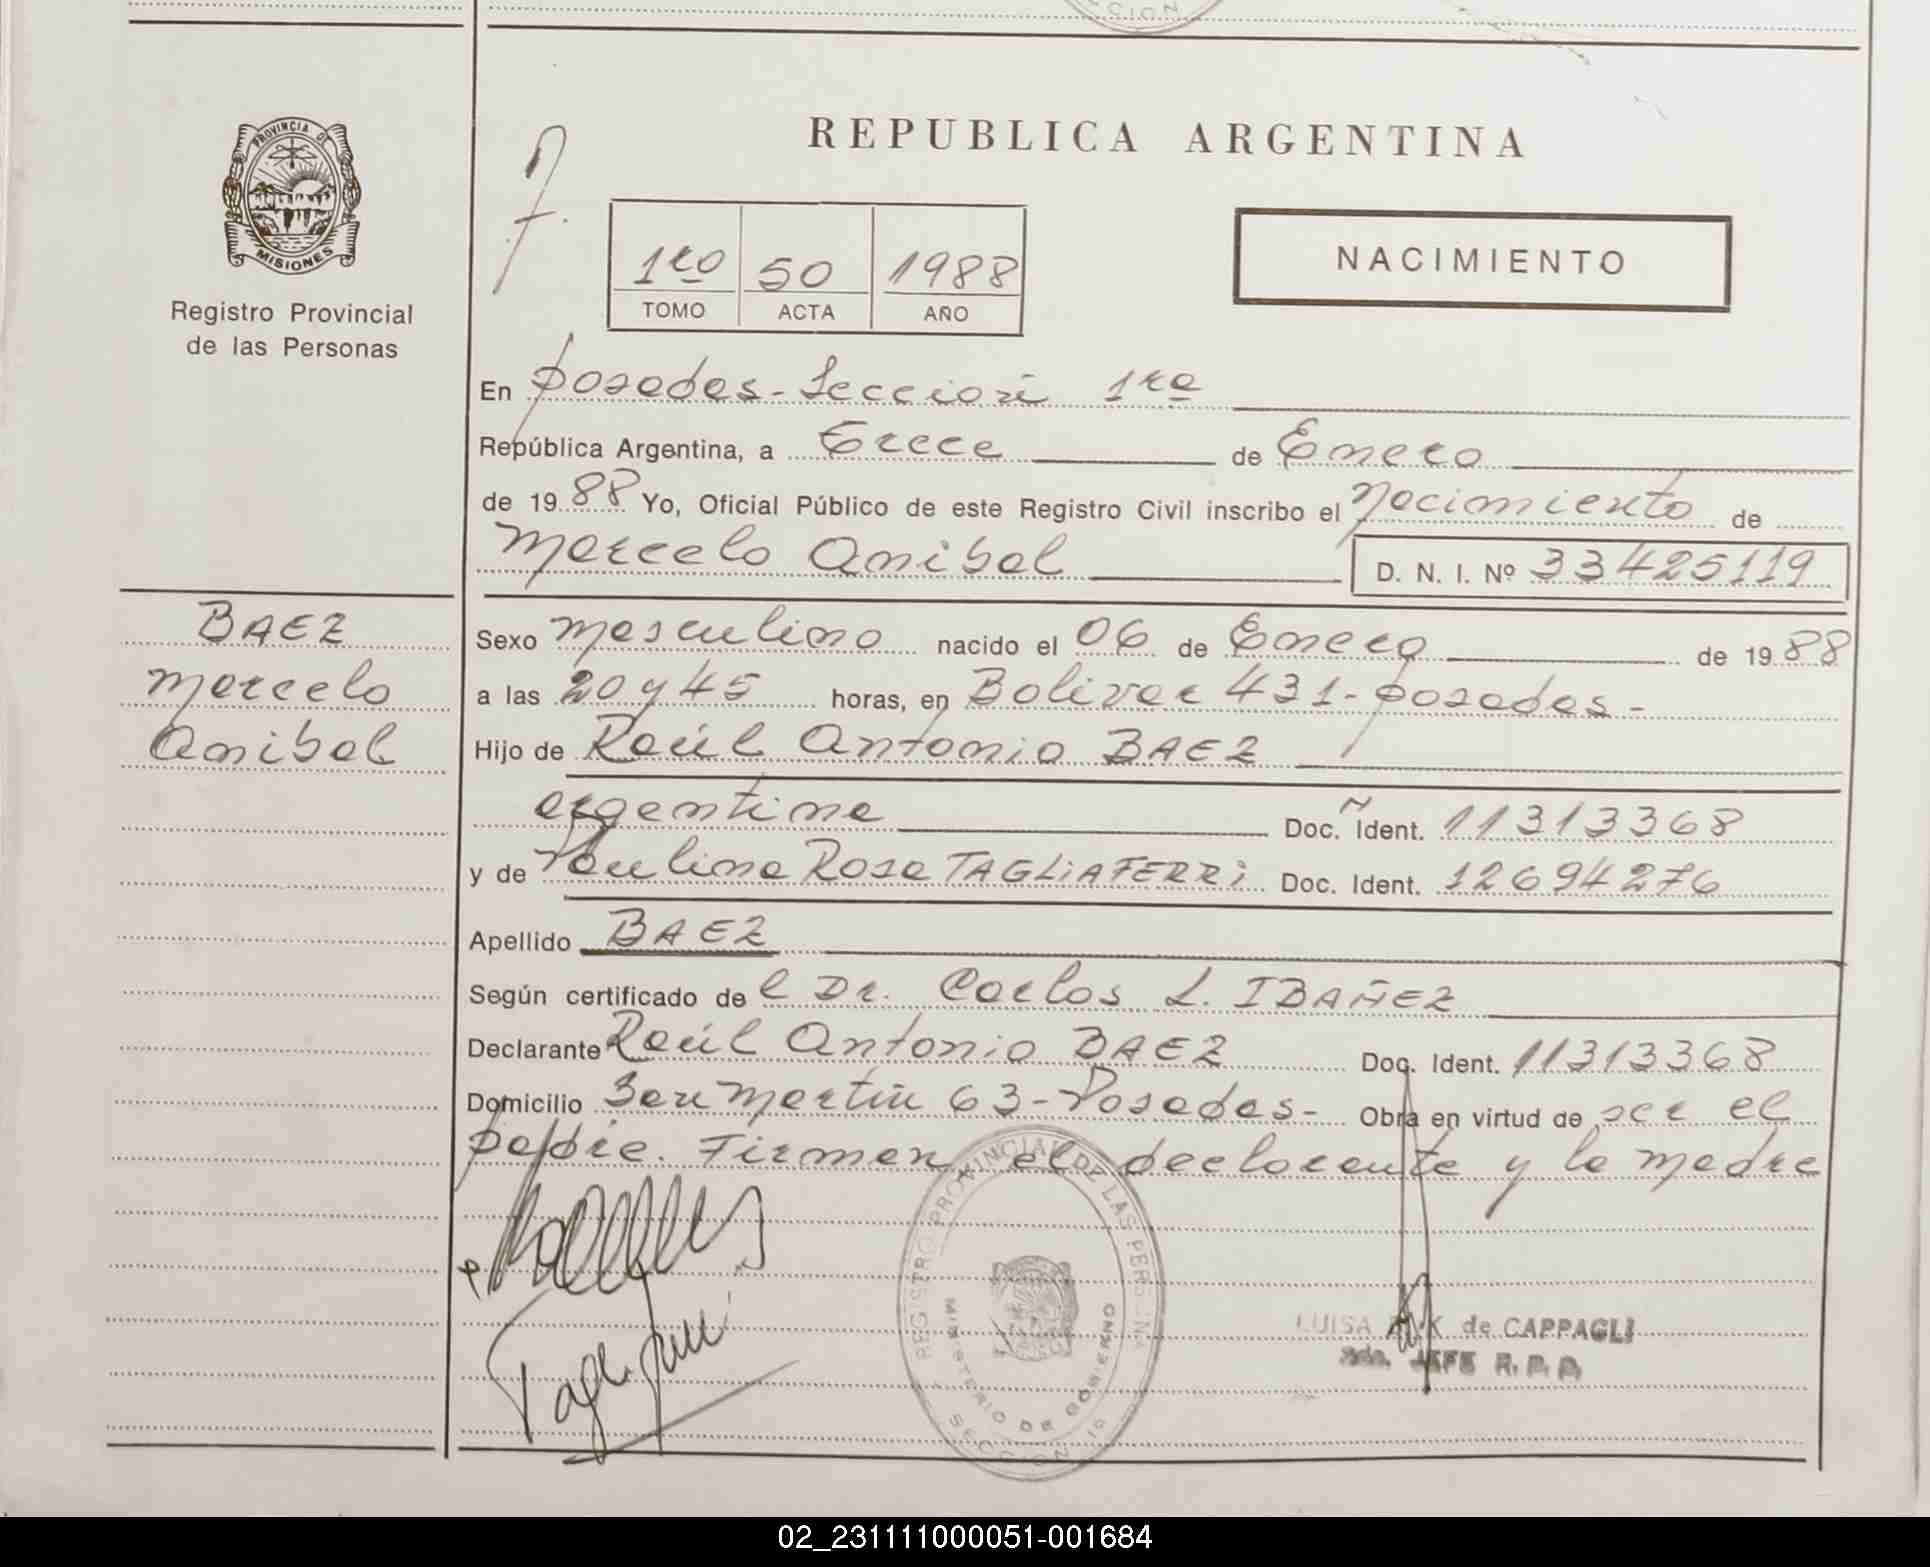 CCION
PROVINCIA DE
MISIONES
Registro Provincial
de las Personas
REPUBLICA ARGENTINA
1ro 50 1988
TOMO ACTA AÑO
NACIMIENTO
En Posadas - Sección 1ra
República Argentina, a Trece de Enero
de 1988 Yo, Oficial Público de este Registro Civil inscribo el Nacimiento de
Marcelo Anibal D. N. I. Nº 33425119
BAEZ
Marcelo
Anibal
Sexo masculino nacido el 06 de Enero de 1988
a las 20 y 45 horas, en Bolivar 431 - Posadas -
Hijo de Raúl Antonio BAEZ
argentina Doc. Ident. 11313368
y de Paulina Rosa TAGLIAFERRI Doc. Ident. 12694276
Apellido BAEZ
Según certificado de l Dr. Carlos L. IBAÑEZ
Declarante Raúl Antonio BAEZ Doc. Ident. 11313368
Domicilio San Martín 63 - Posadas - Obra en virtud de ser el
padre. Firman el declarante y la madre
REGISTRO PROVINCIAL DE LAS PERSONAS
MINISTERIO DE GOBIERNO
SECCION 1a
LUISA K de CAPPAGLI
JEFE R. P. P.
02_231111000051-001684